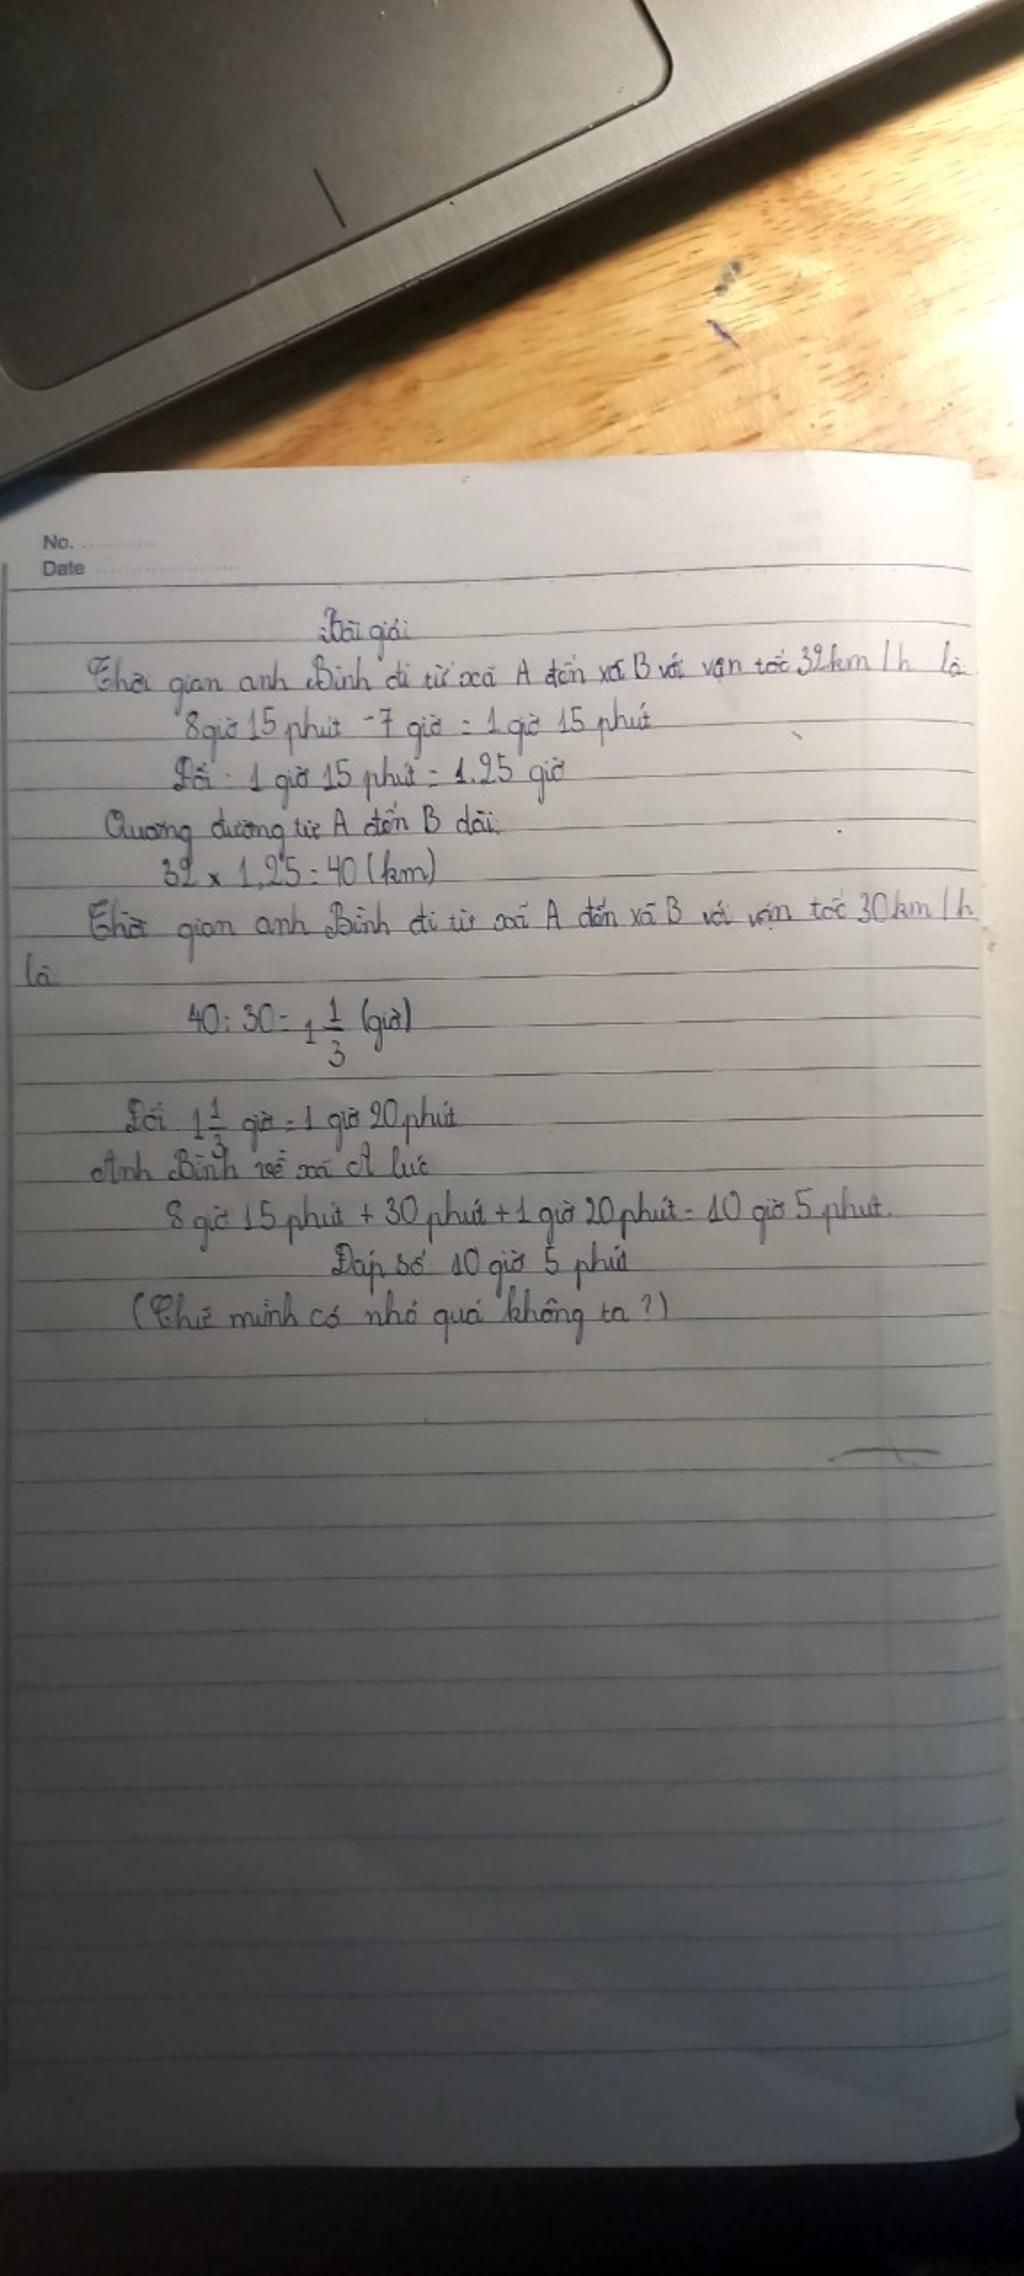 No.
Date
Bài giải
Thời gian anh Bình đi từ xã A đến xã B với vận tốc 32km/h là
8 giờ 15 phút - 7 giờ = 1 giờ 15 phút
Đổi: 1 giờ 15 phút = 1.25 giờ
Quãng đường từ A đến B dài:
32 x 1,25 = 40 (km)
Thời gian anh Bình đi từ xã A đến xã B với vận tốc 30km/h
là
40 : 30 = 1 1/3 (giờ)
Đổi 1 1/3 giờ = 1 giờ 20 phút
Anh Bình về xã A lúc
8 giờ 15 phút + 30 phút + 1 giờ 20 phút = 10 giờ 5 phút.
Đáp số 10 giờ 5 phút
(Chữ mình có nhỏ quá không ta?)